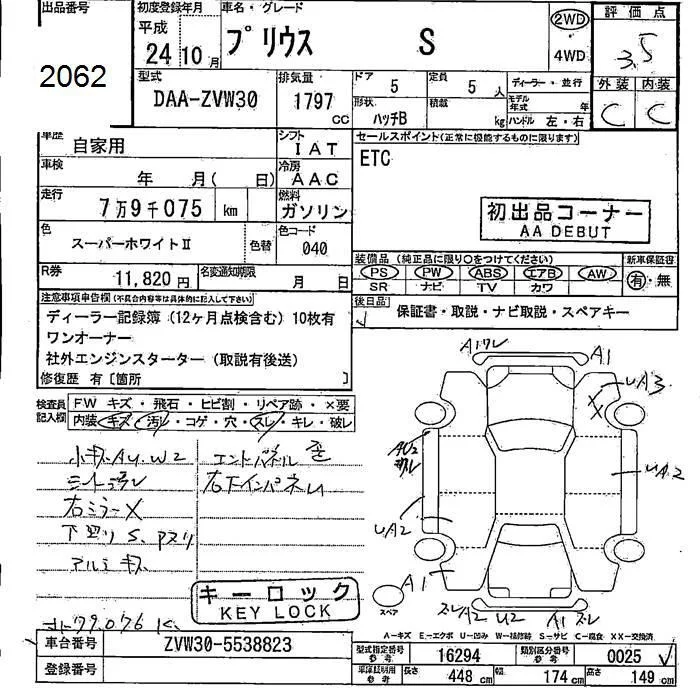 出品番号
2062
初度登録年月
平成
24 10月
車名・グレード
プリウス S
2WD
4WD
評価点
3.5
外装 内装
C C
型式
DAA-ZVW30
排気量
1797 CC
ドア 5
定員 5人
形状 ハッチB
積載 kg
ディーラー・並行
モデル年式 年
ハンドル 左・右
車歴 自家用
シフト IAT
車検 年 月( 日)
冷房 AAC
走行 7万9千075 km
燃料 ガソリン
色 スーパーホワイトⅡ
色替
色コード 040
R券 11,820円
名変通知期限 月 日
セールスポイント(正常に機能するものに限ります)
ETC
初出品コーナー
AA DEBUT
装備品 (純正品に限り○をつけてください)
新車保証書
PS PW ABS エアB AW
有・無
SR ナビ TV カワ
後日品
保証書・取説・ナビ取説・スペアキー
注意事項申告欄(不具合内容等は具体的に記入して下さい)
ディーラー記録簿(12ヶ月点検含む)10枚有
ワンオーナー
社外エンジンスターター(取説有後送)
修復歴 有〔箇所 〕
検査員記入欄
FW キズ・飛石・ヒビ割・リペア跡・×要
内装 キズ・汚レ・コゲ・穴・スレ・キレ・破レ
小キズAU.W2
シート汚レ
右ミラーX
下廻りS.
アルミキズ
右下インパネU
79.076 K
キーロック
KEY LOCK
A1
UA3
X
AU2
UA2
UA2
A1
スレ A2 U2 A1 スレ
スペア
A-キズ E-エクボ U-凹み W-補修跡 S-サビ C-腐食 XX-交換済
車台番号 ZVW30-5538823
登録番号
型式指定番号参考 16294
類別区分番号参考 0025
車庫証明用参考
長さ 448 cm
幅 174 cm
高さ 149 cm